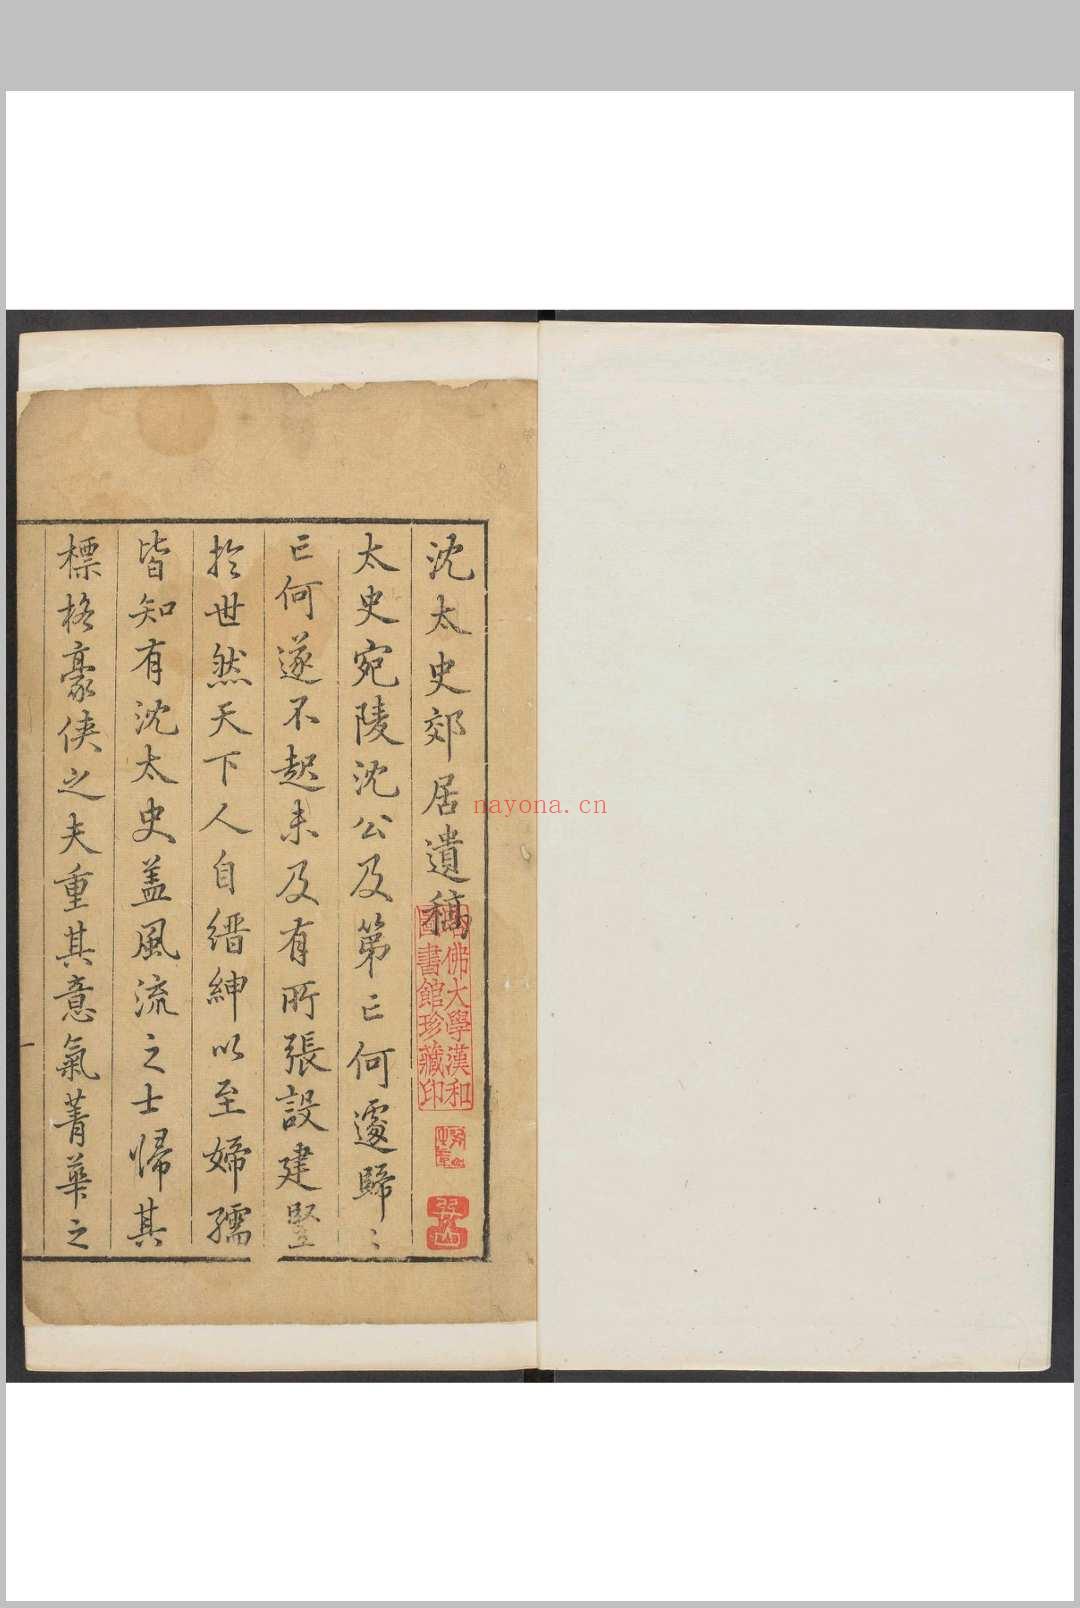 沈太史郊居遺稿
太史宛陵沈公及第亡何遽歸〻
亡何遂不起未及有所張設建豎
於世然天下人自縉紳以至婦孺
皆知有沈太史蓋風流之士歸其
標格豪俠之夫重其意氣菁華之
哈佛大學漢和
圖書館珍藏印
nayona.cn